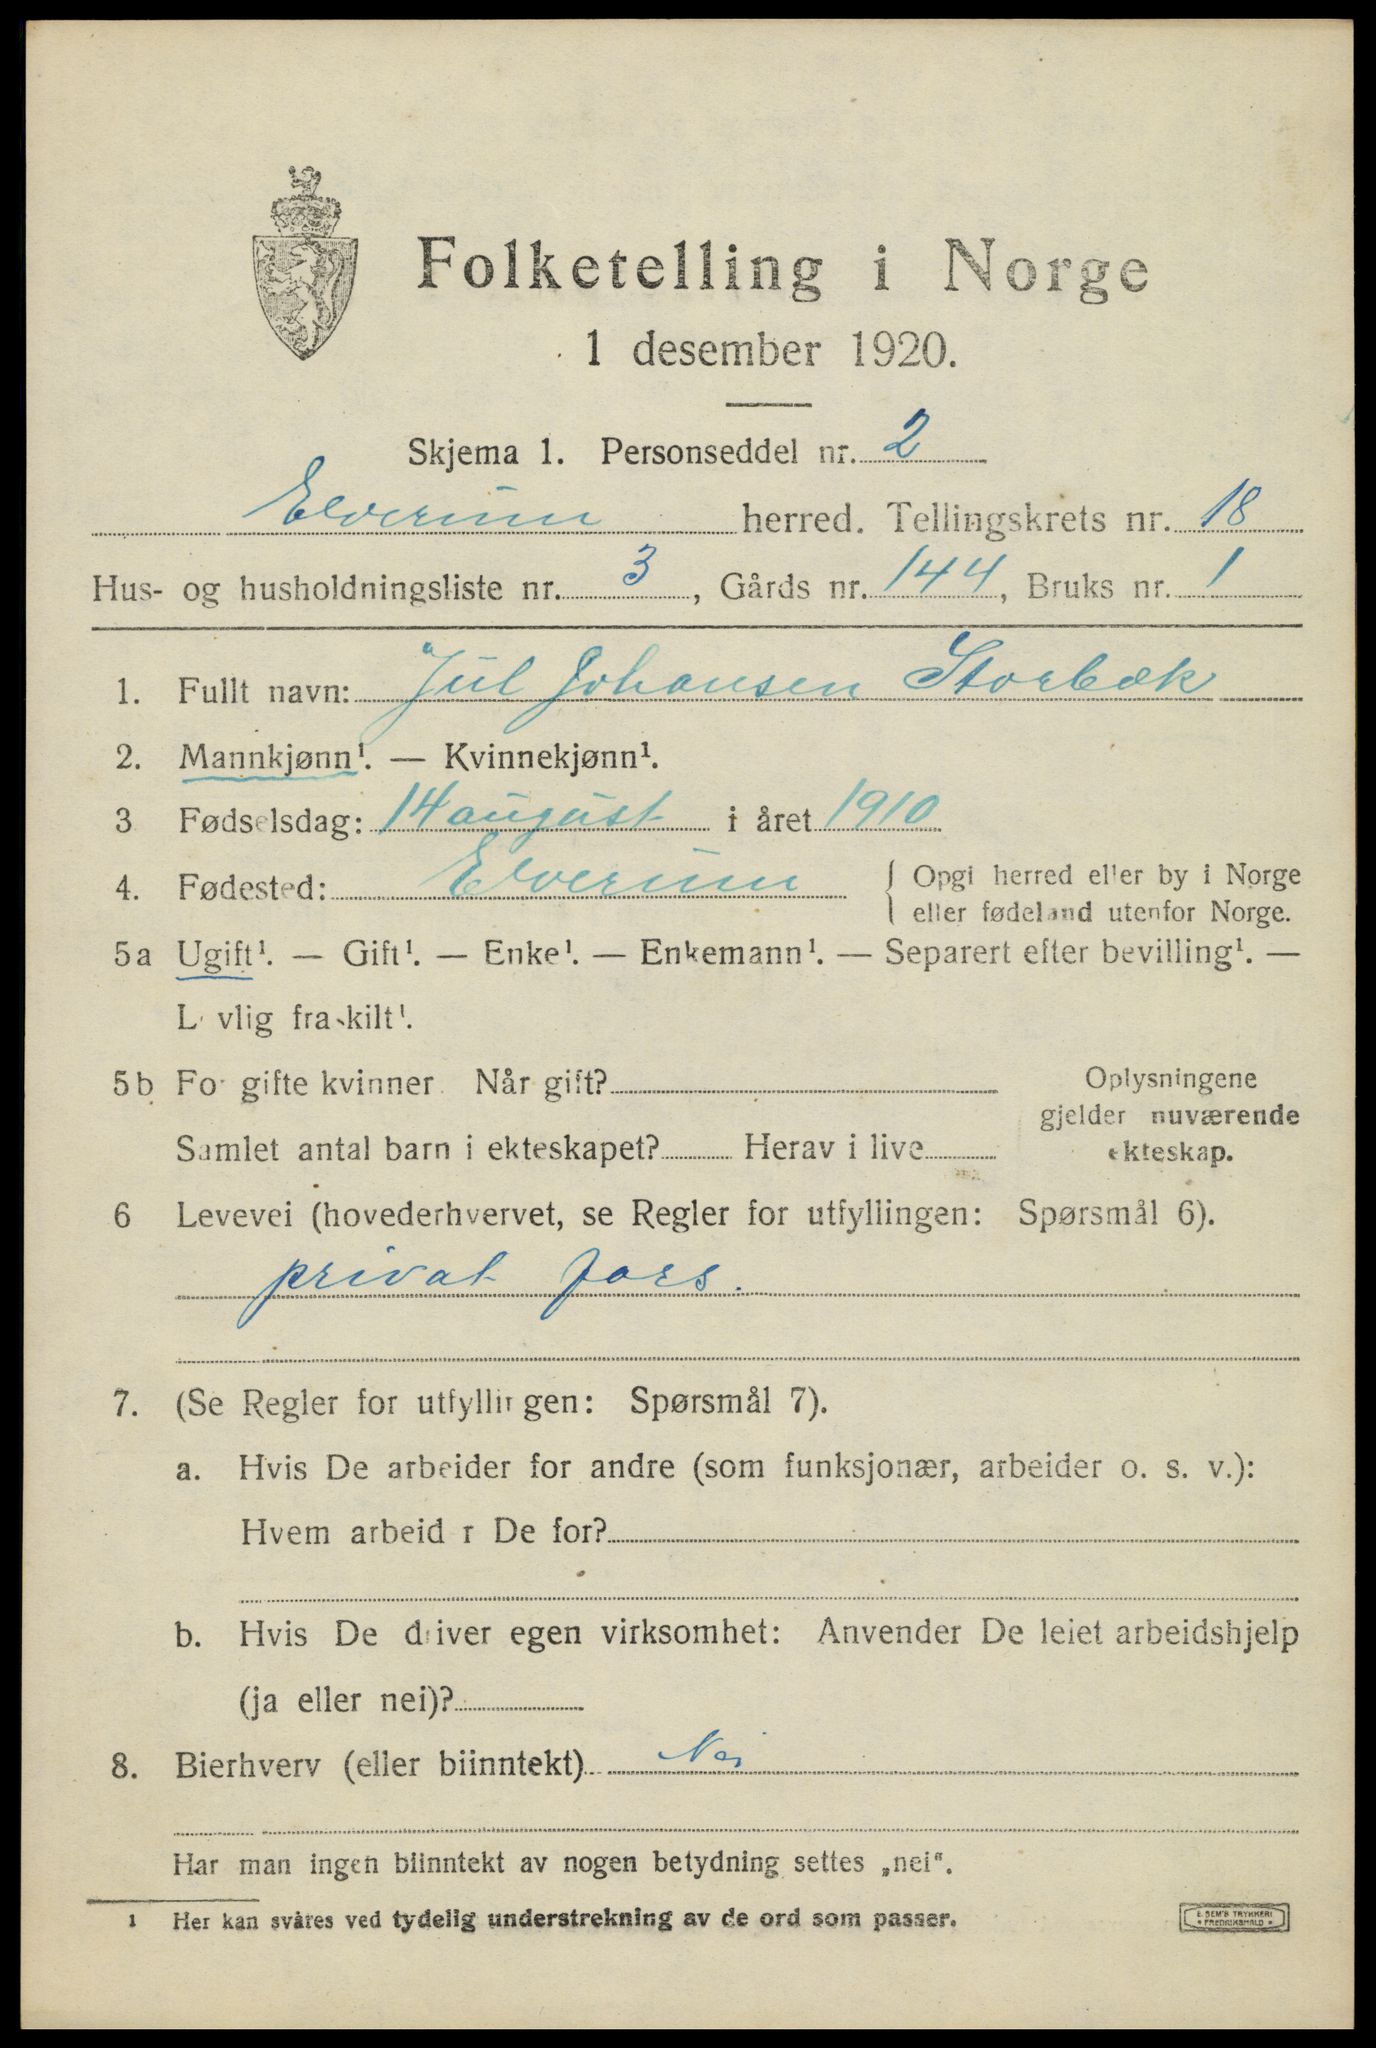 Folketelling i Norge
1 desember 1920.
Skjema 1. Personseddel nr. 2
Elverum herred. Tellingskrets nr. 18
Hus- og husholdningsliste nr. 3, Gårds nr. 144, Bruks nr. 1
1. Fullt navn: Jul Johansen Storbæk
2. Mannkjønn¹. — Kvinnekjønn¹.
3 Fødselsdag: 14 august i året 1910
4. Fødested: Elverum { Opgi herred eller by i Norge
eller fødeland utenfor Norge.
5a Ugift¹. — Gift¹. — Enke¹. — Enkemann¹. — Separert efter bevilling¹. —
Lovlig fraskilt¹.
5b For gifte kvinner. Når gift? Oplysningene
gjelder nuværende
Samlet antal barn i ekteskapet? Herav i live ekteskap.
6 Levevei (hovederhvervet, se Regler for utfyllingen: Spørsmål 6).
privat fors.
7. (Se Regler for utfyllingen: Spørsmål 7).
a. Hvis De arbeider for andre (som funksjonær, arbeider o. s. v.):
Hvem arbeider De for?
b. Hvis De driver egen virksomhet: Anvender De leiet arbeidshjelp
(ja eller nei)?
8. Bierhverv (eller biinntekt) Nei
Har man ingen biinntekt av nogen betydning settes „nei“.
1 Her kan svares ved tydelig understrekning av de ord som passer.
E. SEM'S TRYKKERI
* FREDRIKSHALD *